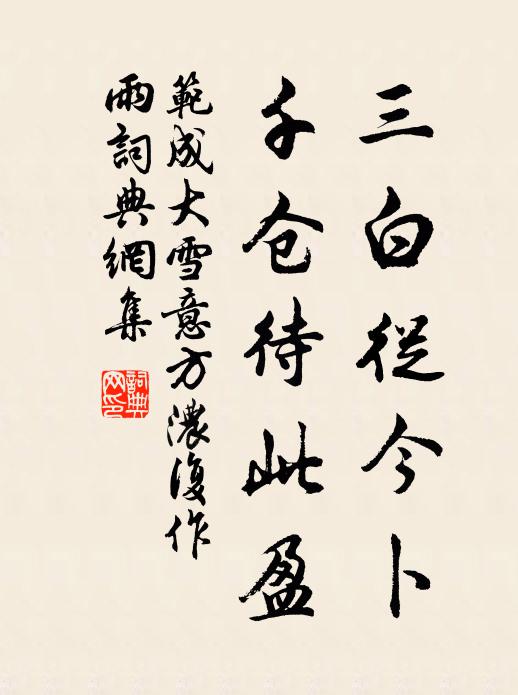 三白從今卜
千仓待此盈
範成大雪意方濃復作
雨詞典網集
詞典
网印